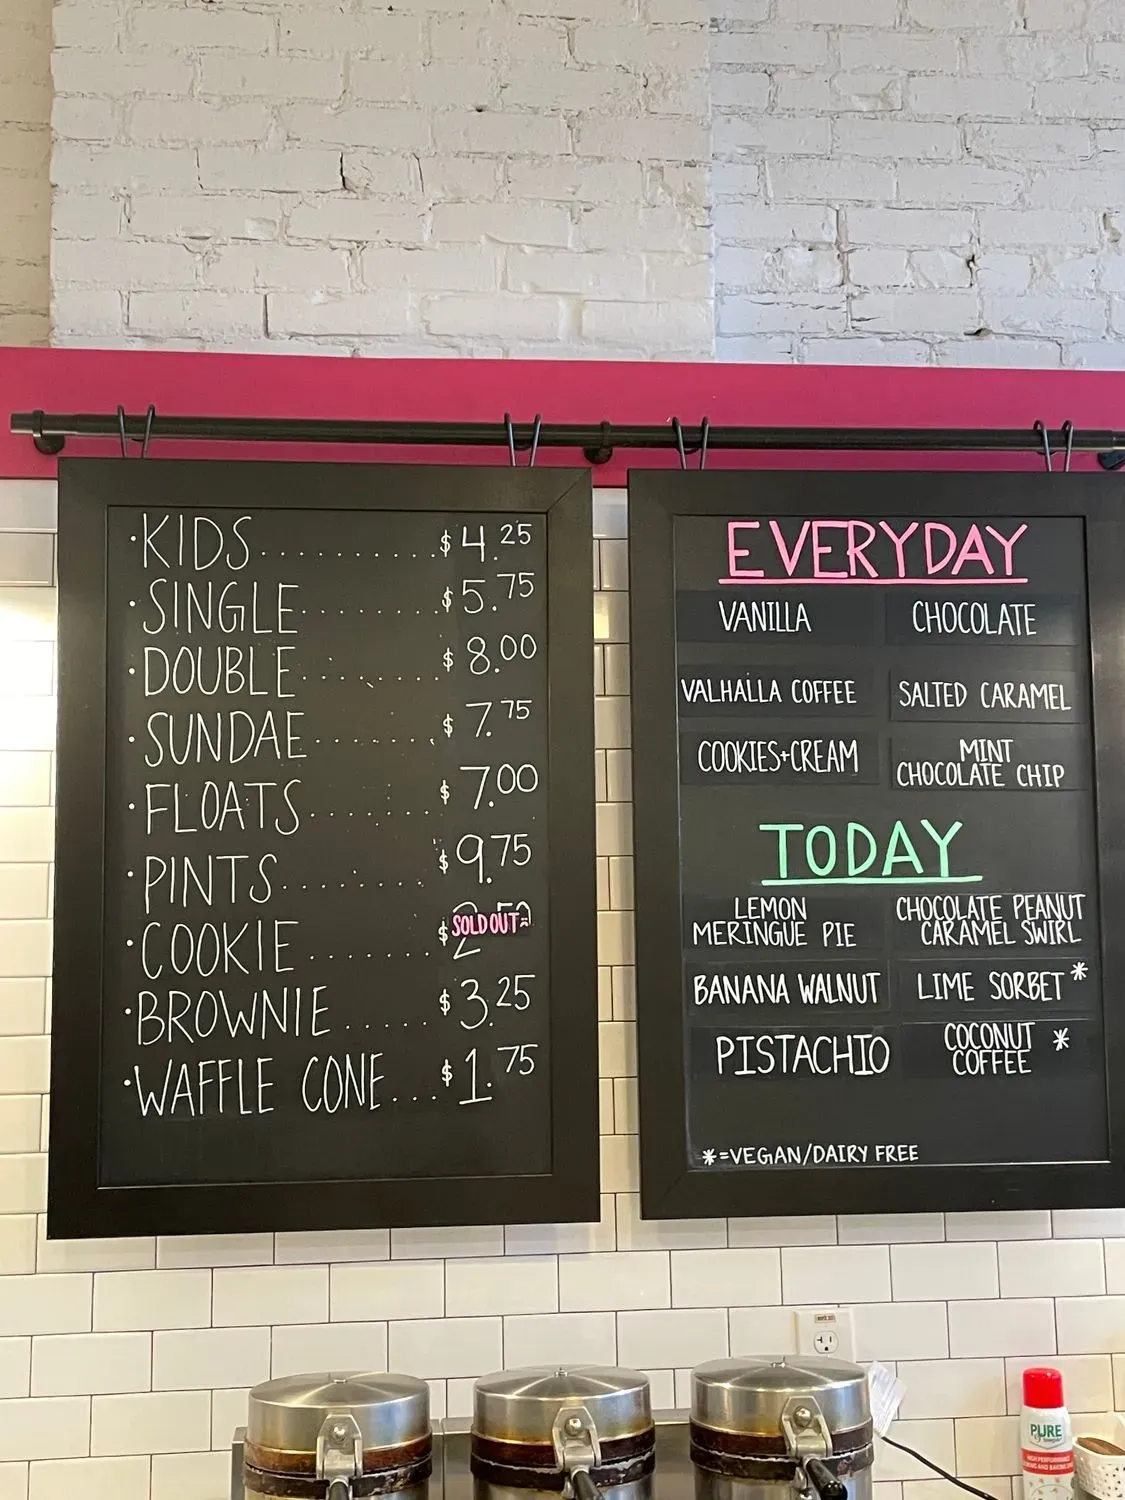 ·KIDS..............$4.25
·SINGLE............$5.75
·DOUBLE...........$8.00
·SUNDAE..........$7.75
·FLOATS...........$7.00
·PINTS.............$9.75
·COOKIE..........$ SOLD OUT
·BROWNIE.....$3.25
·WAFFLE CONE...$1.75
EVERYDAY
VANILLA CHOCOLATE
VALHALLA COFFEE SALTED CARAMEL
COOKIES+CREAM MINT
CHOCOLATE CHIP
TODAY
LEMON
MERINGUE PIE
CHOCOLATE PEANUT
CARAMEL SWIRL
BANANA WALNUT LIME SORBET*
PISTACHIO COCONUT
COFFEE *
*=VEGAN/DAIRY FREE
PURE